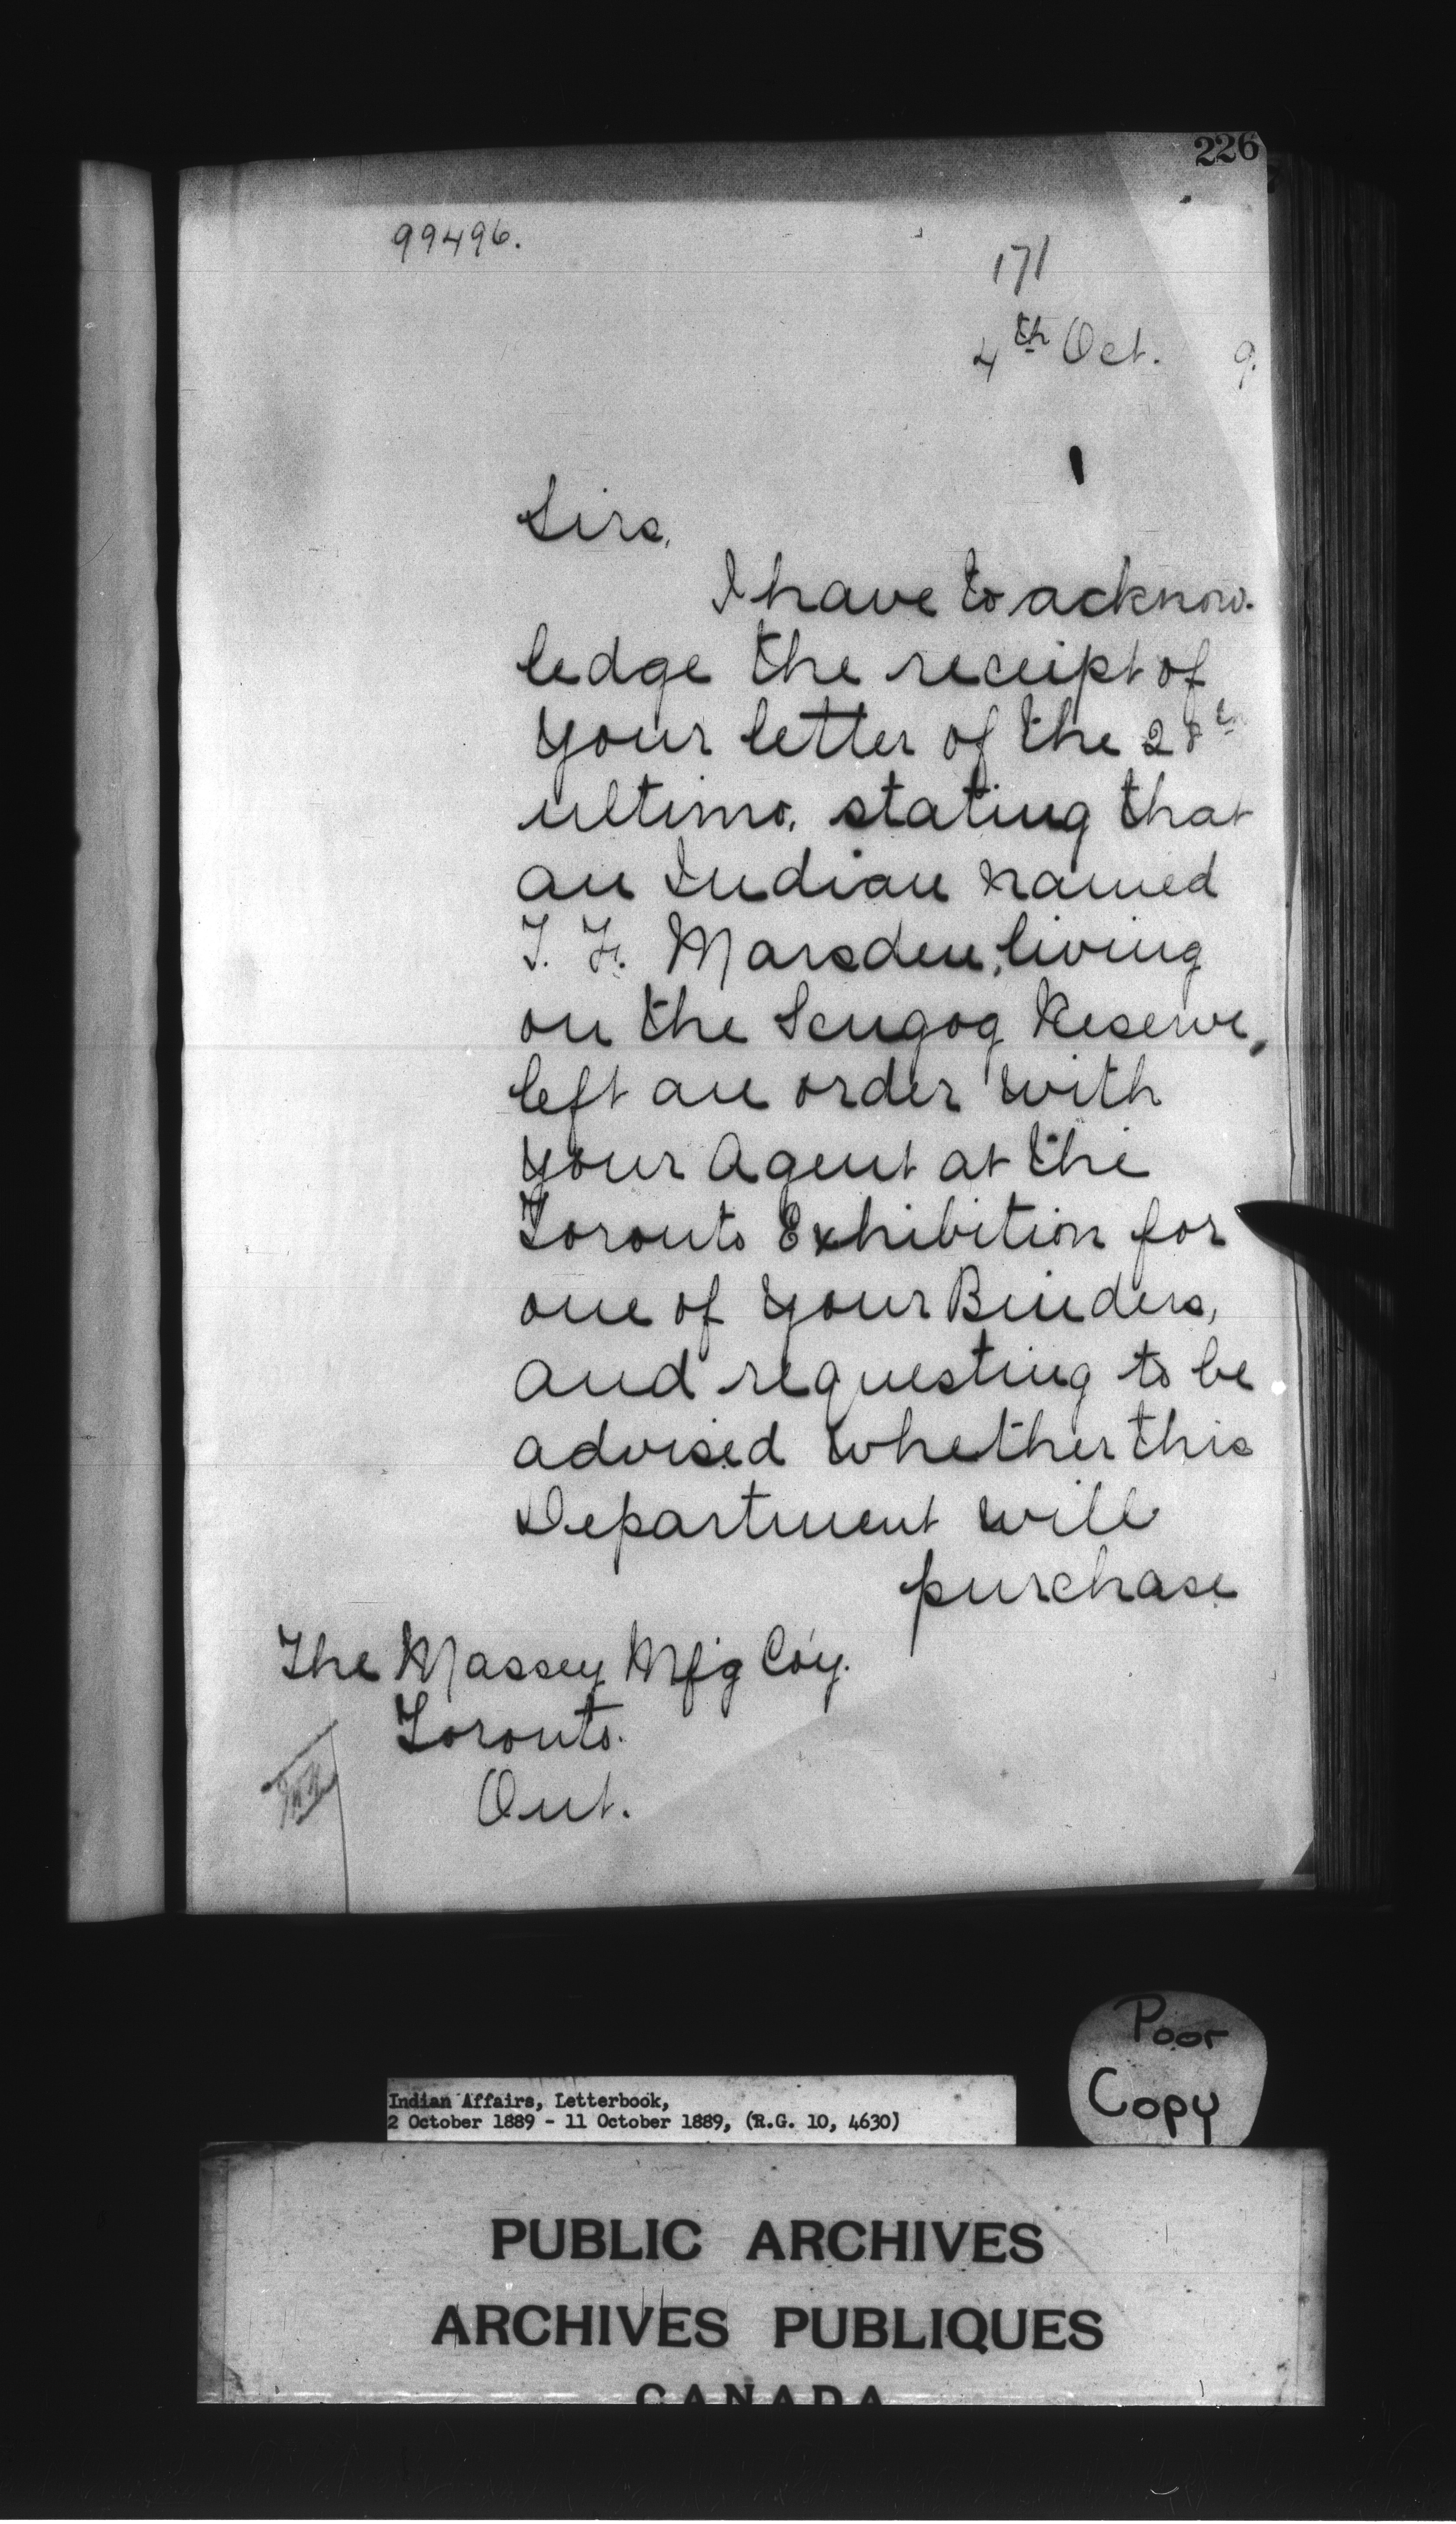 226
99496.
171
4th Oct. 9.
Sirs,
I have to acknow-
ledge the receipt of
your letter of the 28th
ultimo, stating that
an Indian named
T. F. Marsden, living
on the Scugog Reserve,
left an order with
your Agent at the
Toronto Exhibition for
one of your Binders,
and requesting to be
advised whether this
Department will
purchase
The Massey Mfg Coy.
Toronto.
Ont.
Poor
Copy
Indian Affairs, Letterbook,
2 October 1889 - 11 October 1889, (R.G. 10, 4630)
PUBLIC ARCHIVES
ARCHIVES PUBLIQUES
CANADA